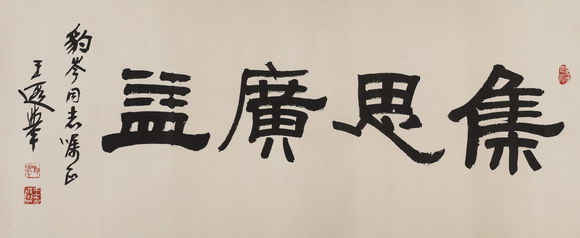 集思廣益
豹岑同志嘱正
王遐舉